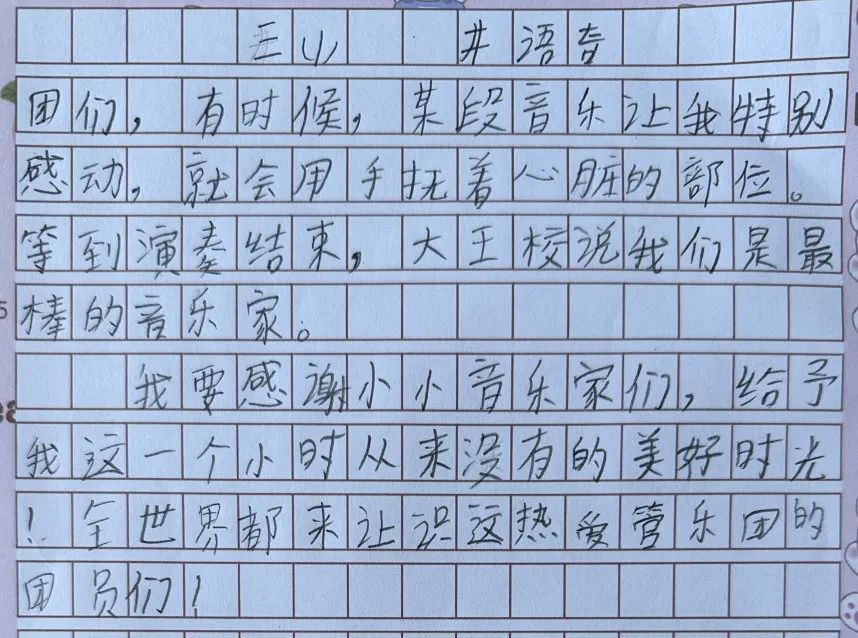 团们，有时候，某段音乐让我特别
感动，就会用手抚着心脏的部位。
等到演奏结束，大王校说我们是最
棒的音乐家。
我要感谢小小音乐家们，给予
我这一个小时从来没有的美好时光
！全世界都来让识这热爱管乐团的
团员们！